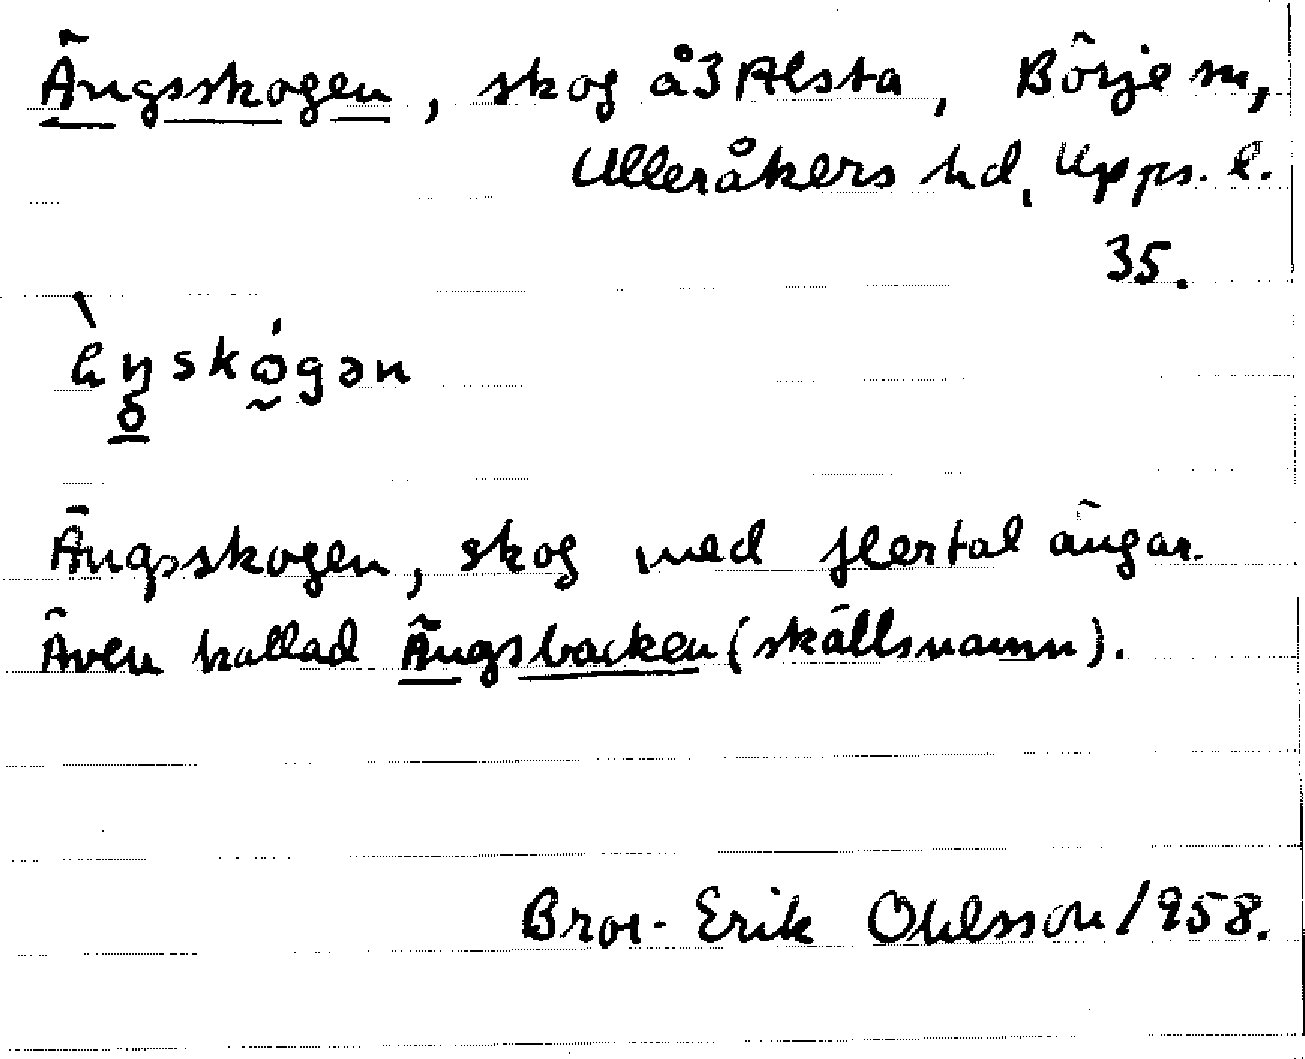 Ängsskogen, skog å3 Alsta, Börje sn,
Ulleråkers hd, Upps. l.
35.
Ängsskogen, skog med flertal ängar.
Även kallad Ängsbacken (skällsnamn).
Bror-Erik Ohlsson 1958.